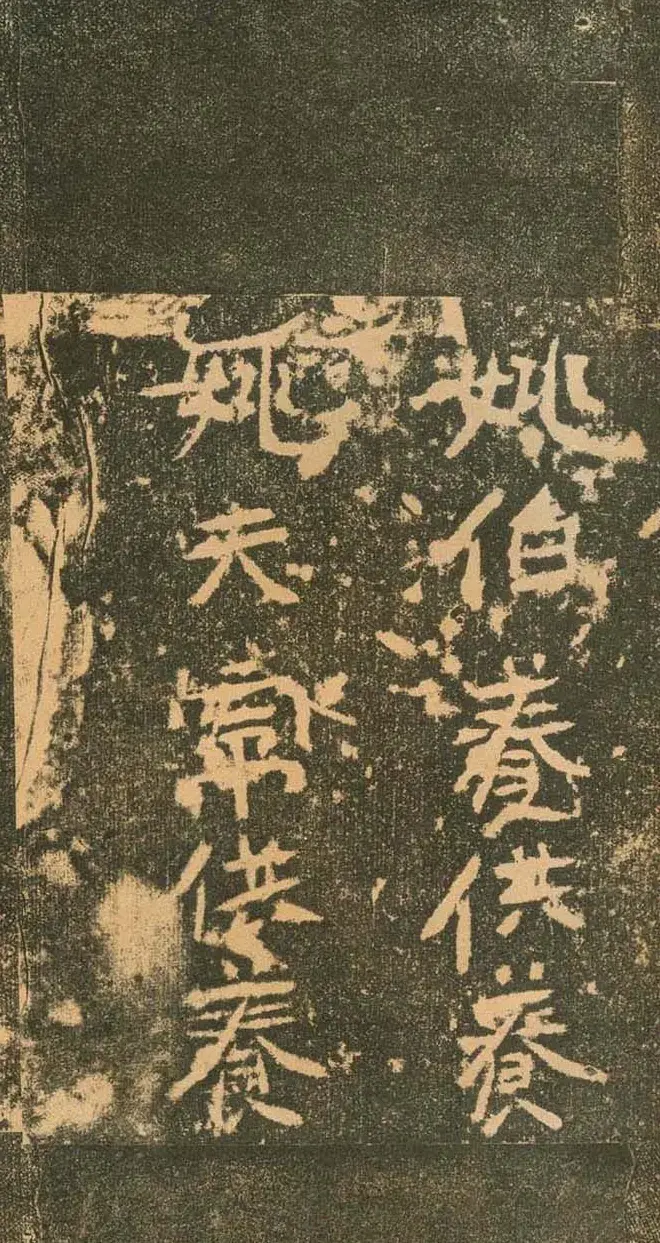 姚伯養供養
姚夫常供養